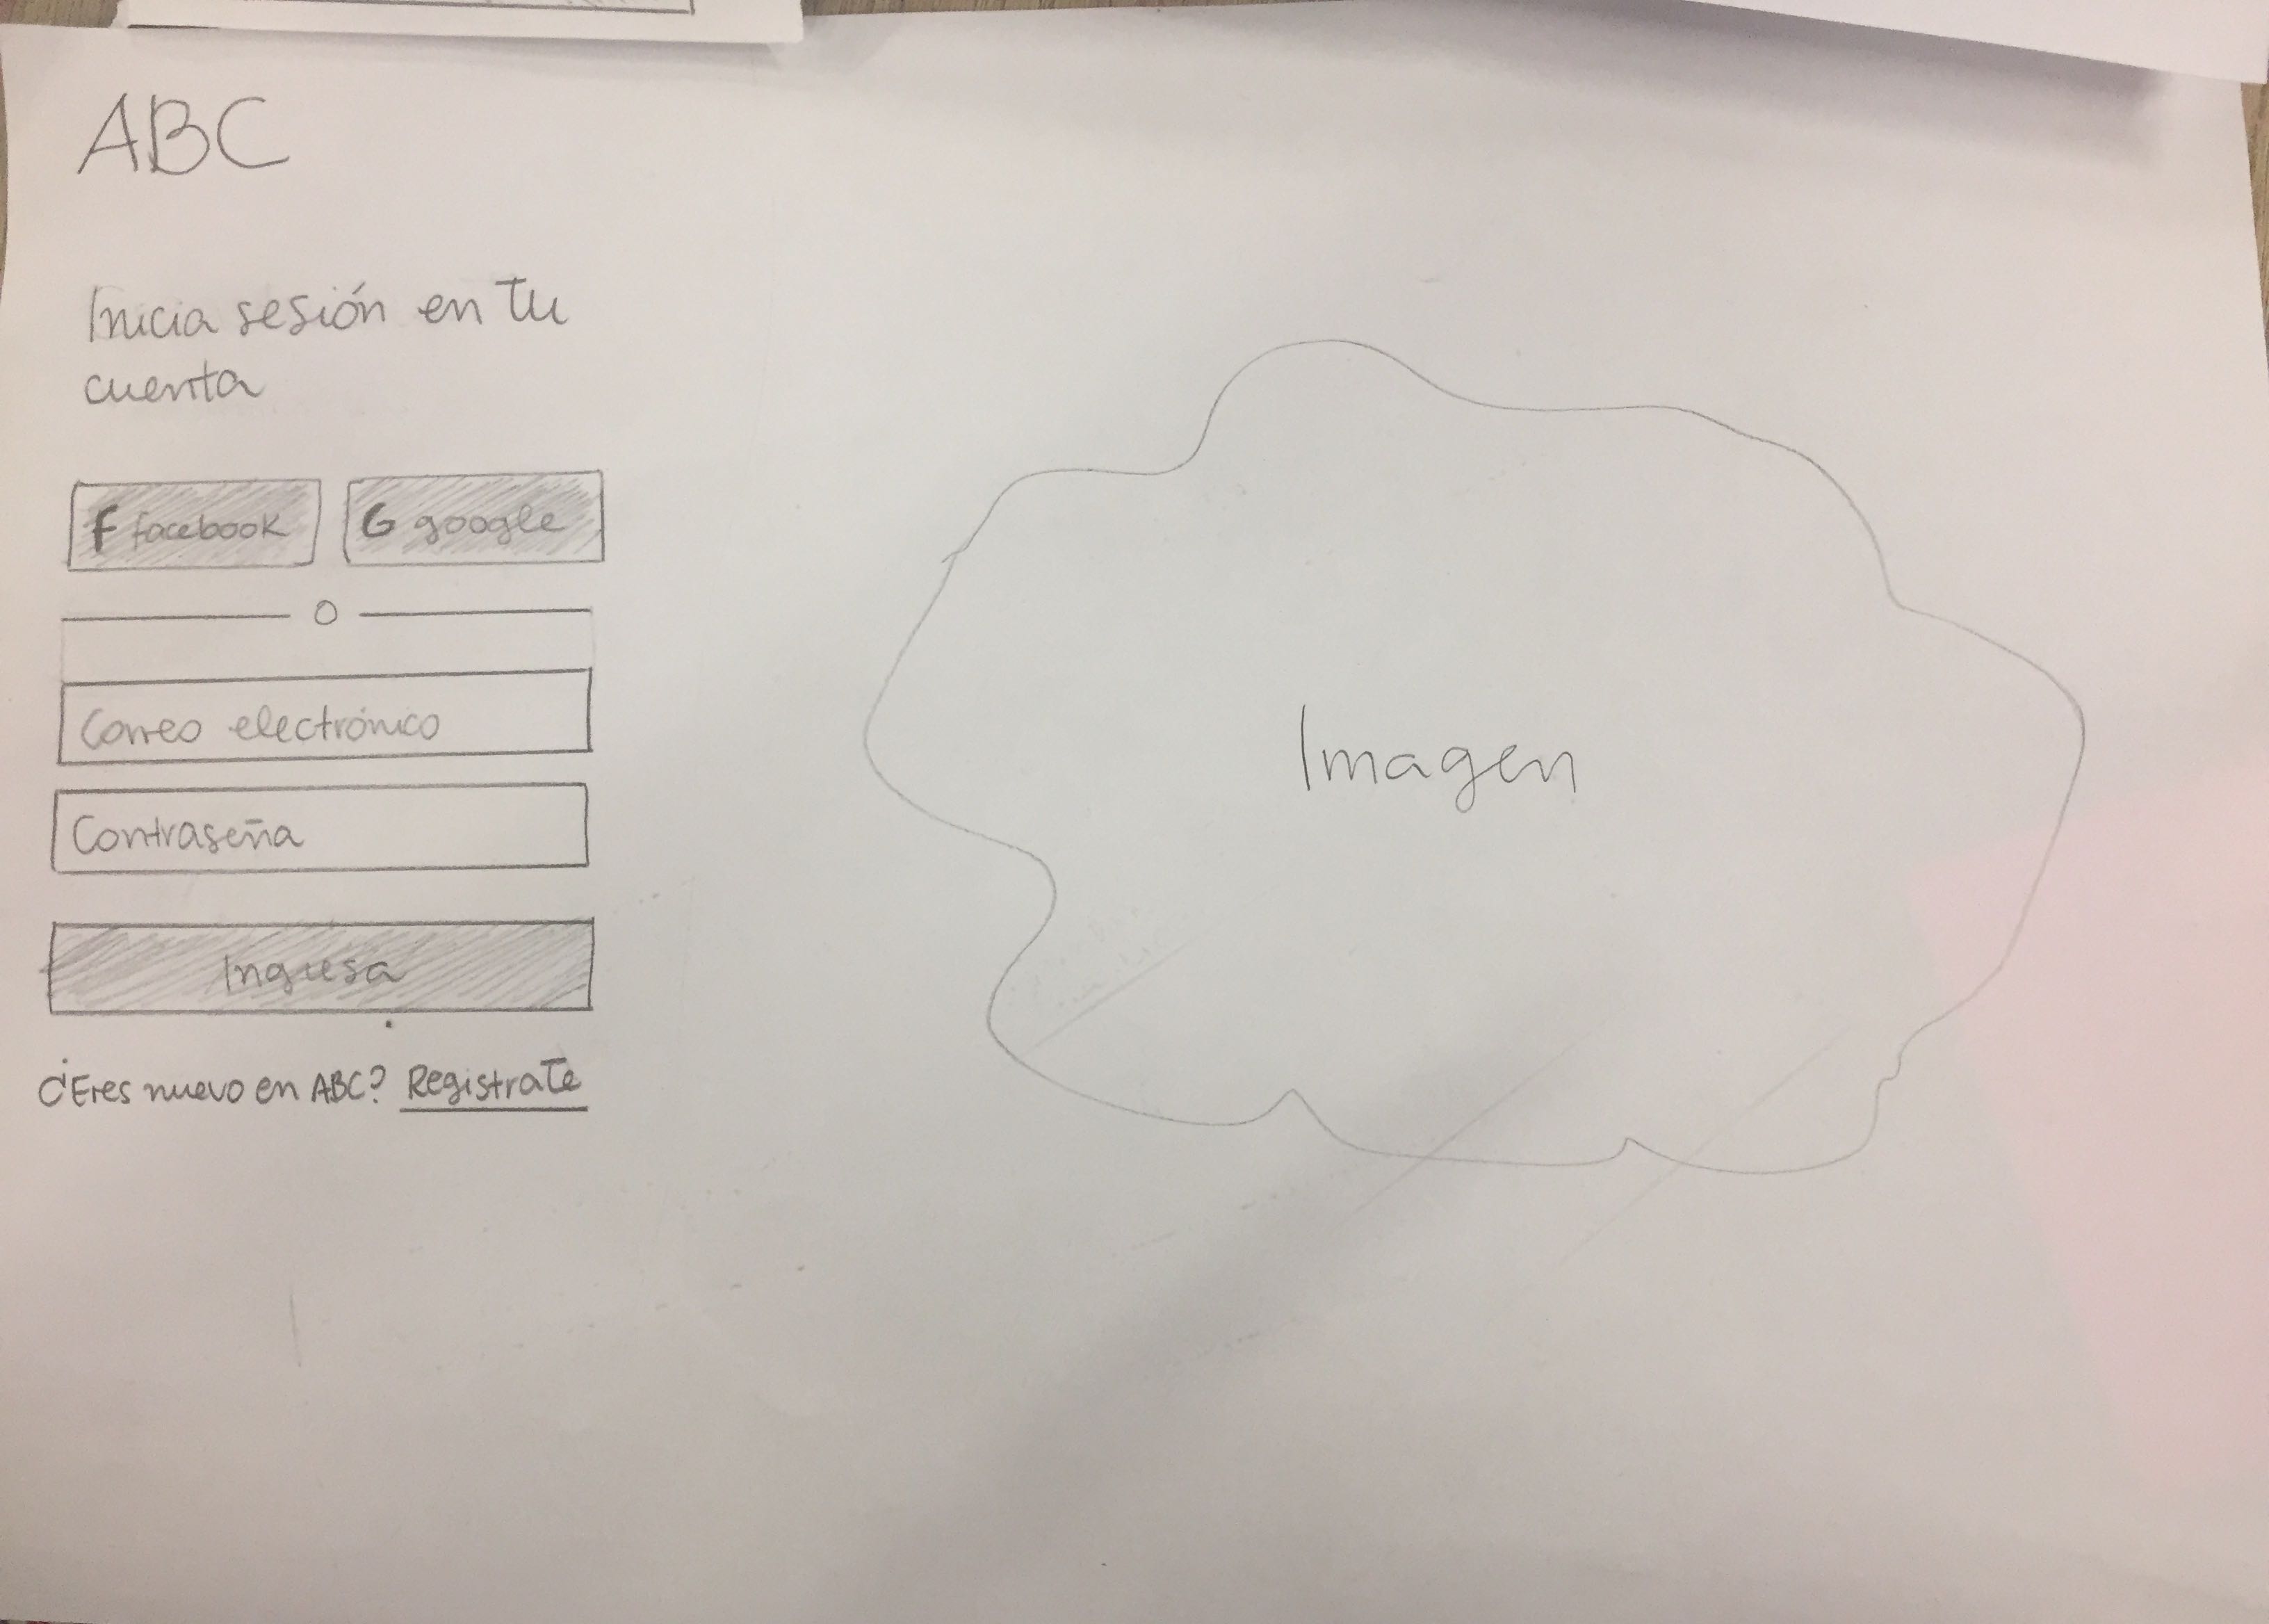 ABC
Inicia sesión en tu
cuenta
F facebook
G google
O
Correo electrónico
Contraseña
Ingresa
¿Eres nuevo en ABC? Registrate
Imagen